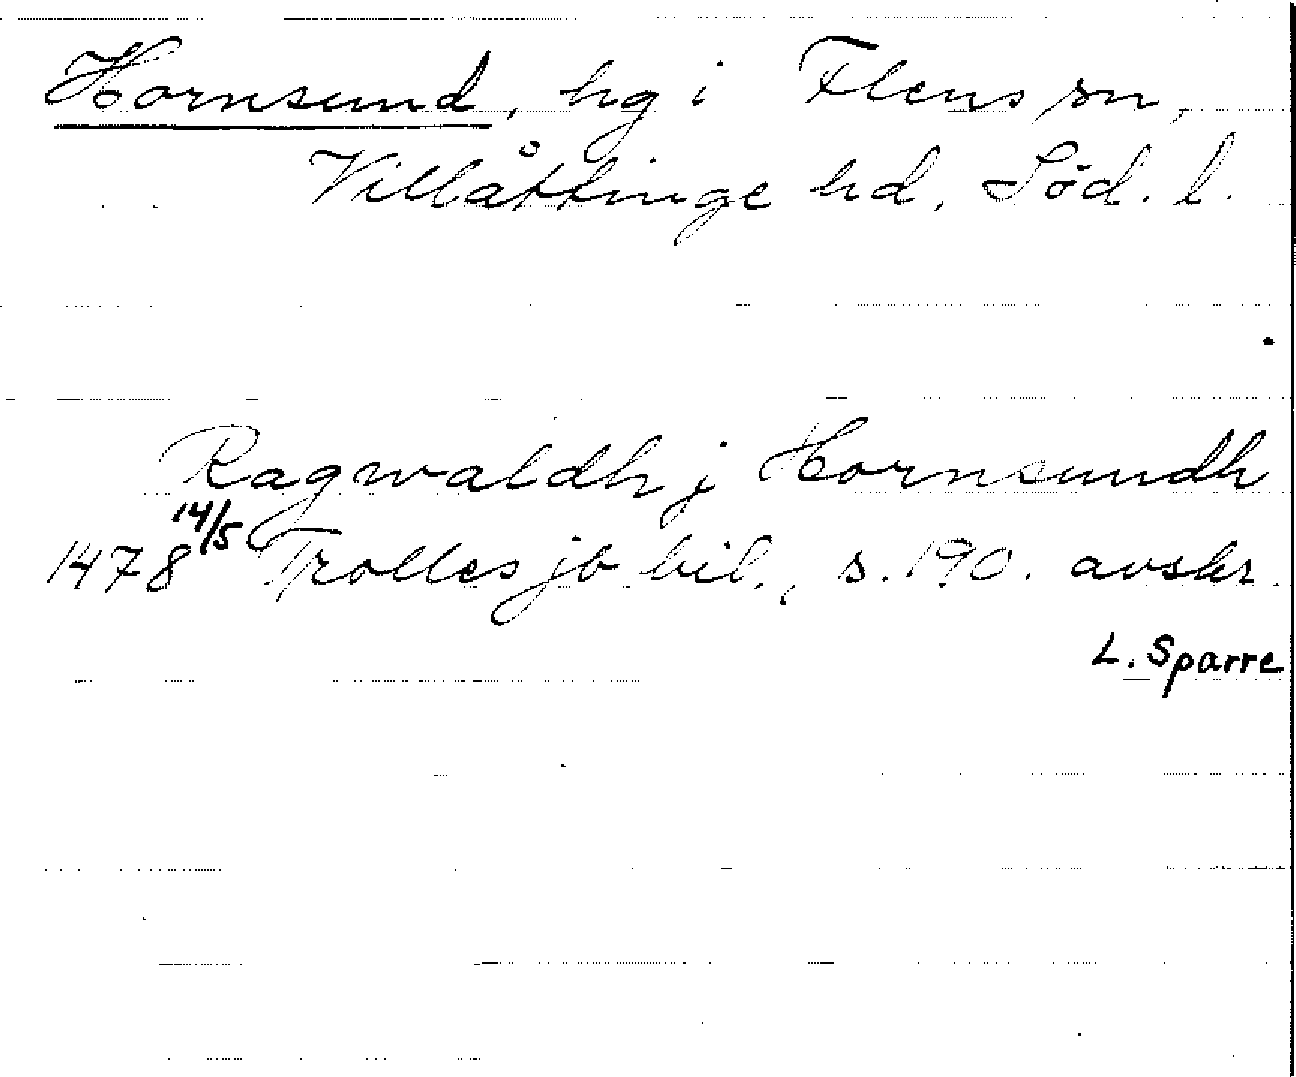 Hornsund, hg i Flens sn,
Villåttinge hd, Söd. l.
Ragwaldh j Hornsundh
1478 14/5 Trolles jb bil., s. 190. avskr.
L. Sparre